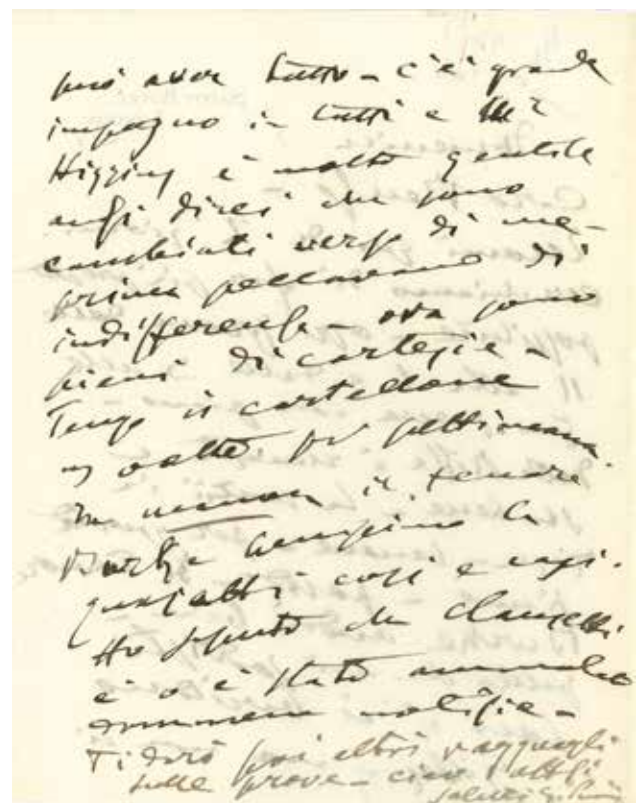 può aver tutto – c'è grande
impegno in tutti e Mr
Higgins è molto gentile
anzi direi che sono
cambiati verso di me –
prima peccavano di
indifferenza – ora sono
pieni di cortesie –
Tengo il cartellone
2 volte per settimana.
In Manon il tenore
Burke benissimo la
quasi altri così e così.
Ho saputo che Clausetti
è o è stato ammalato
dammene notizie –
Ti darò poi altri ragguagli
sulle prove – ciao
saluti